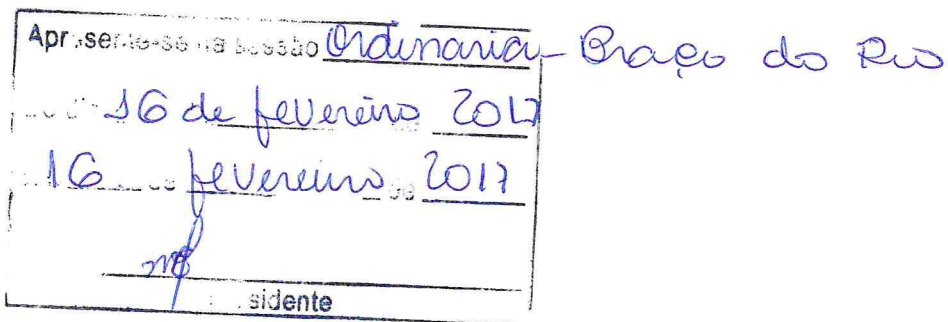 Apresente-se na sessão Ordinaria - Braço do Rio
16 de fevereiro 2017
16 fevereiro de 2017
sidente